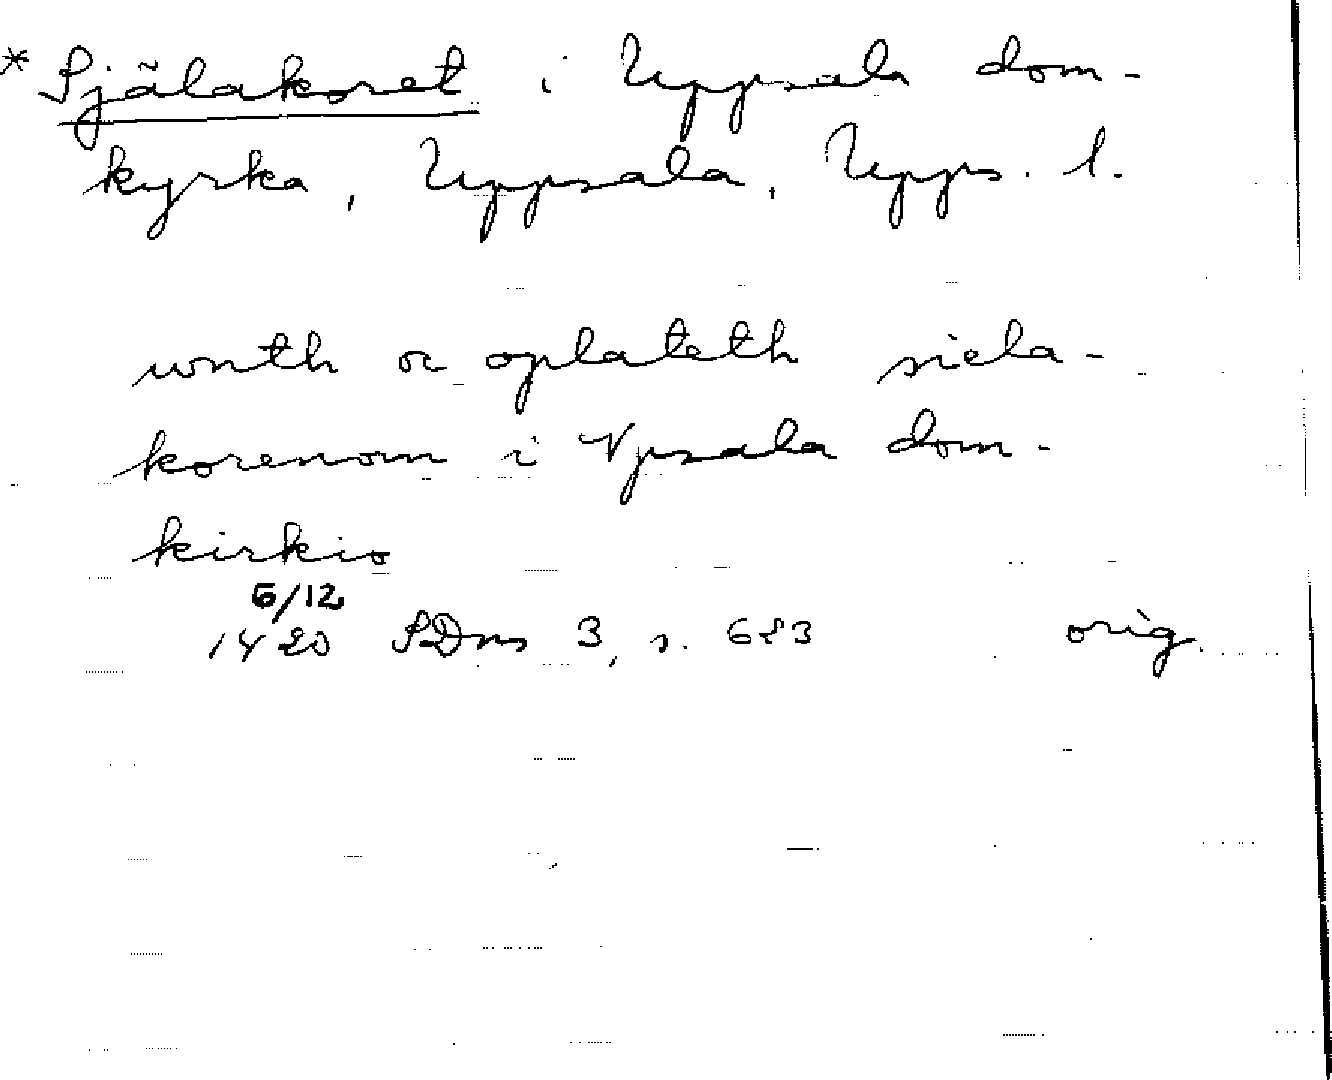 * Själakoret i Uppsala dom-
kyrka, Uppsala, Upps. l.
wnth oc oplateth siela-
korenom i Vpsala dom-
kirkio
6/12
1420 SDns 3, s. 683 orig.